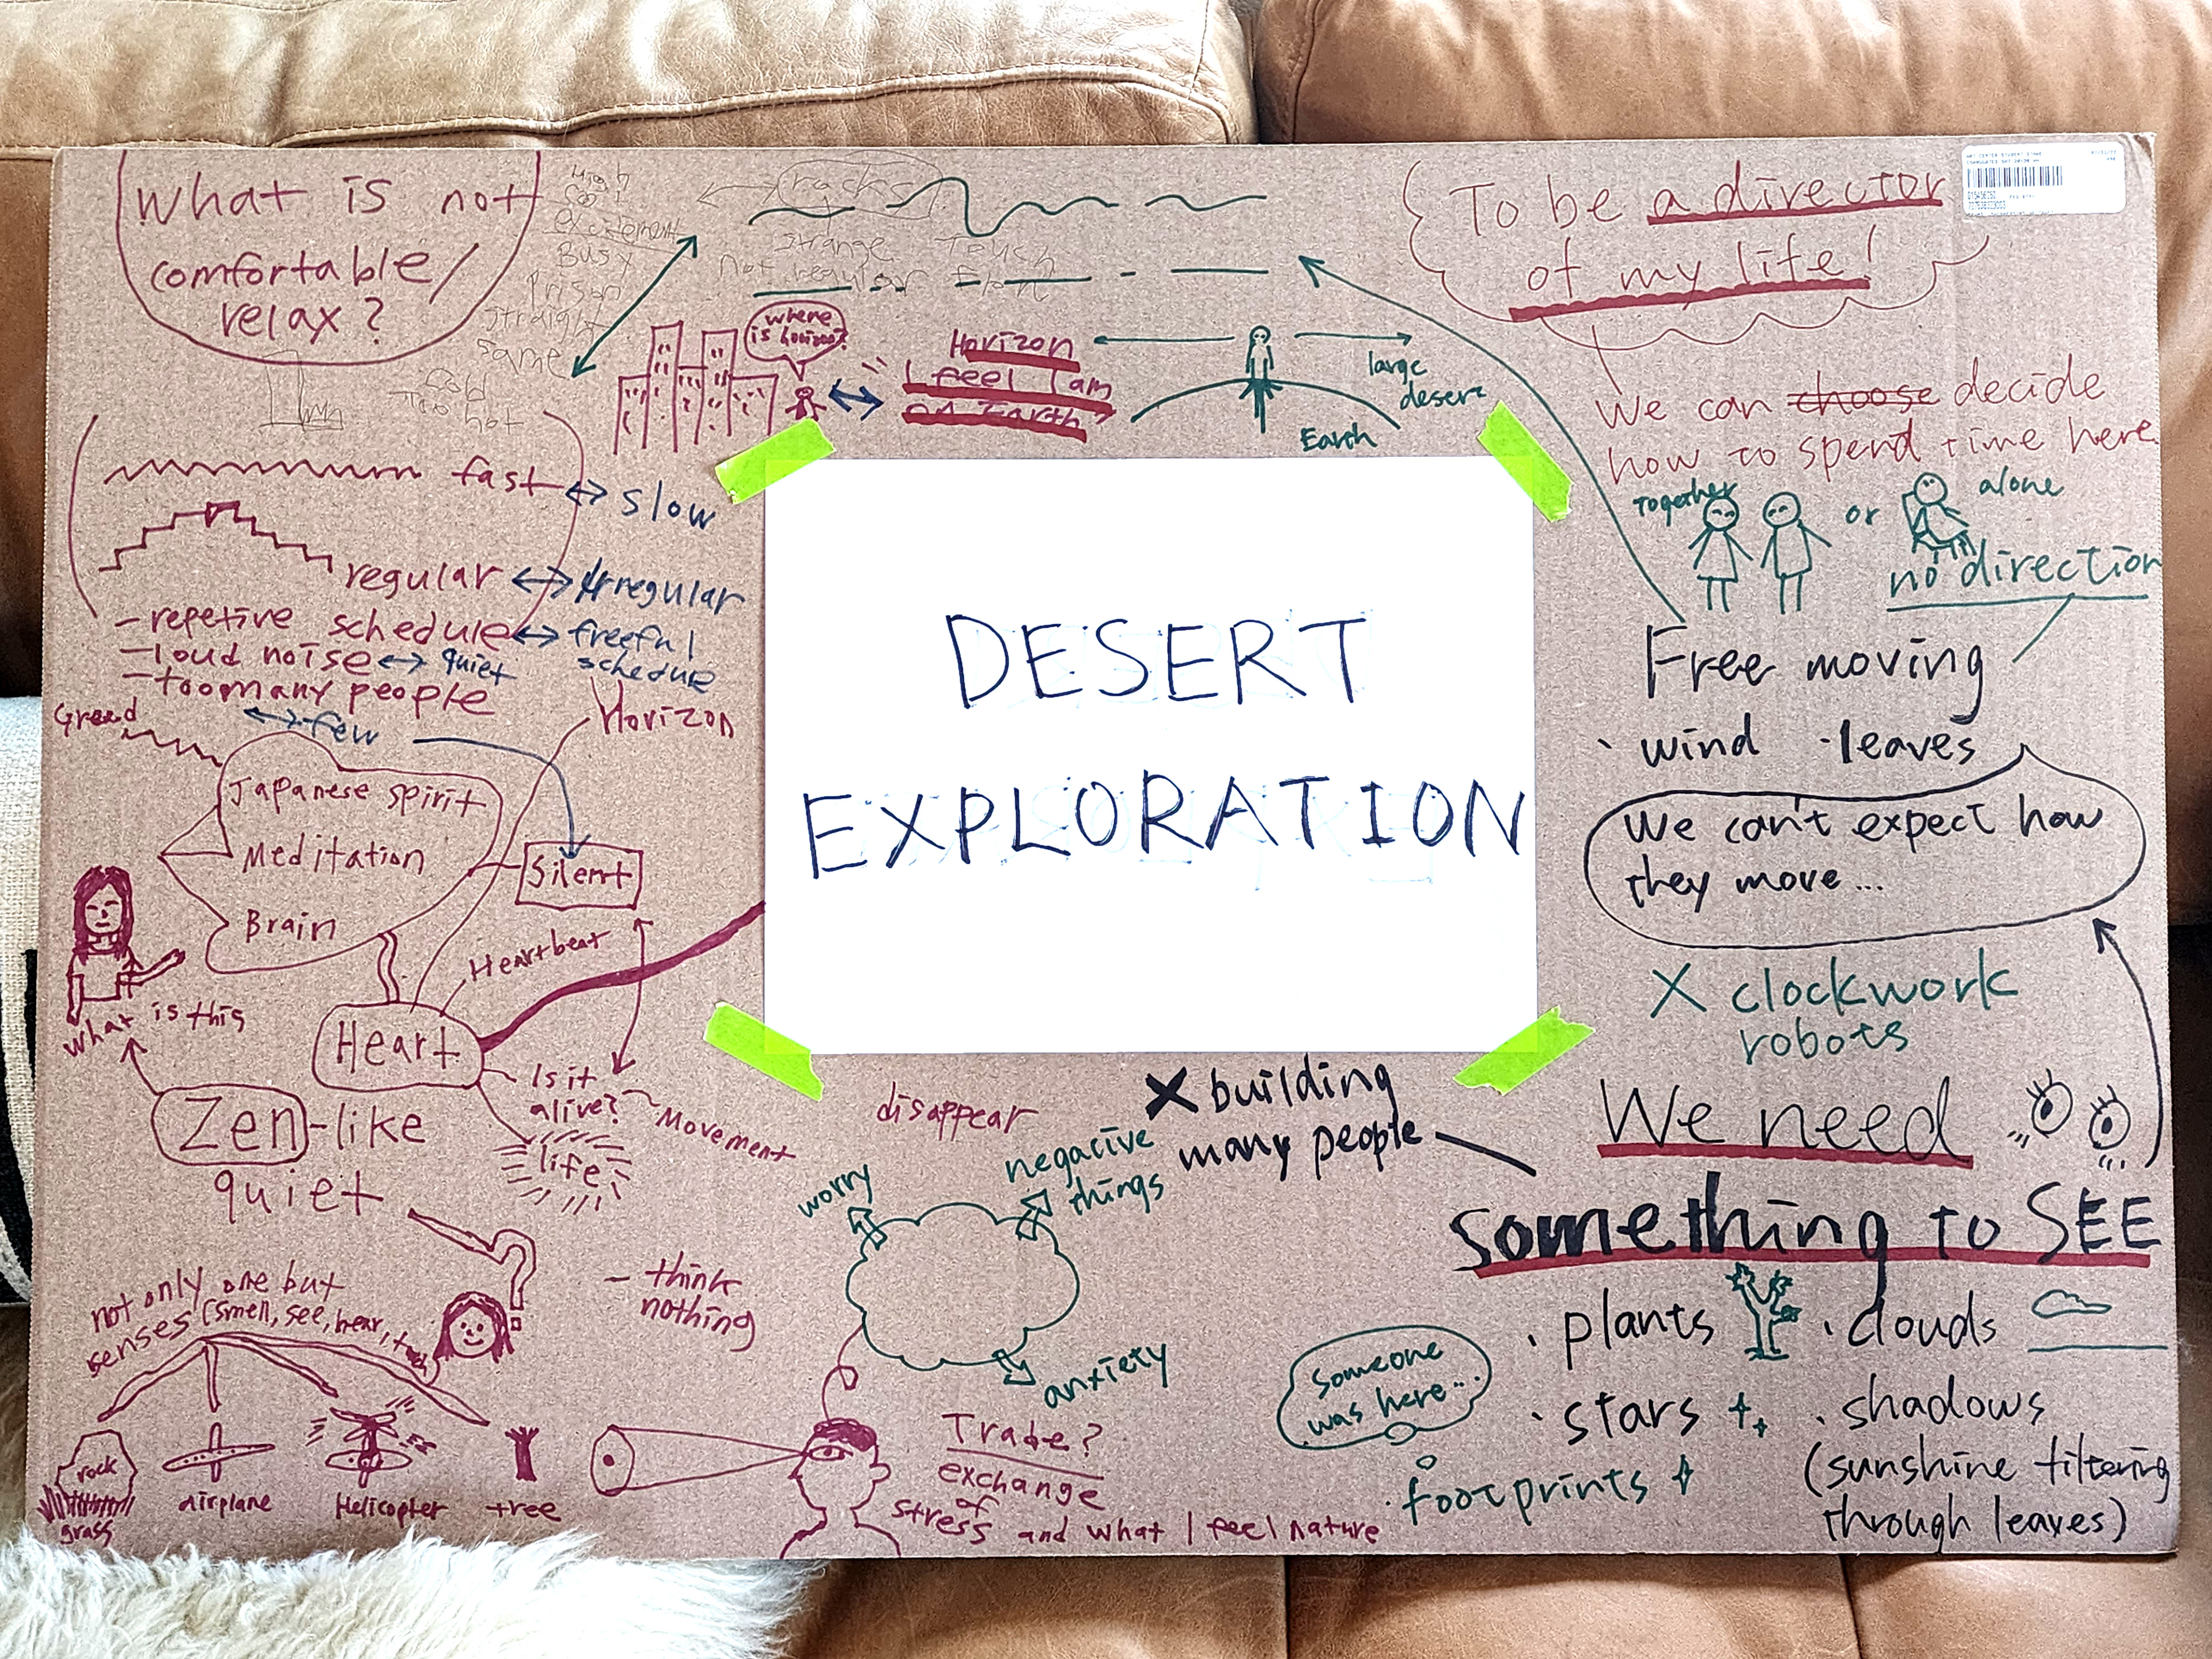 What is not
comfortable/
relax?
High
Cool
excitement
Busy
Prison
straight
same
Cold
Too hot
cracks
strange Touch
not regular
where
is horizon?
Horizon
I feel I am
on Earth
large
desert
Earth
To be a director
of my life!
We can choose decide
how to spend time here.
Together
or
alone
no direction
Free moving
· wind · leaves
We can't expect how
they move...
X clockwork
robots
We need
something to SEE
· plants
· clouds
· stars
· shadows
(sunshine filtering
through leaves)
· footprints
Someone
was here...
X building
many people
fast
slow
regular
Irregular
- repetive schedule
freeful
schedule
- loud noise
quiet
- too many people
few
Greed
Horizon
Japanese spirit
Meditation
Brain
Silent
Heartbeat
Heart
Is it
alive?
Movement
life
What is this
Zen-like
quiet
not only one but
senses (smell, see, hear,
rock
grass
airplane
Helicopter
tree
- think
nothing
disappear
worry
negative
things
anxiety
Trade?
exchange
of
stress and what I feel nature
DESERT
EXPLORATION